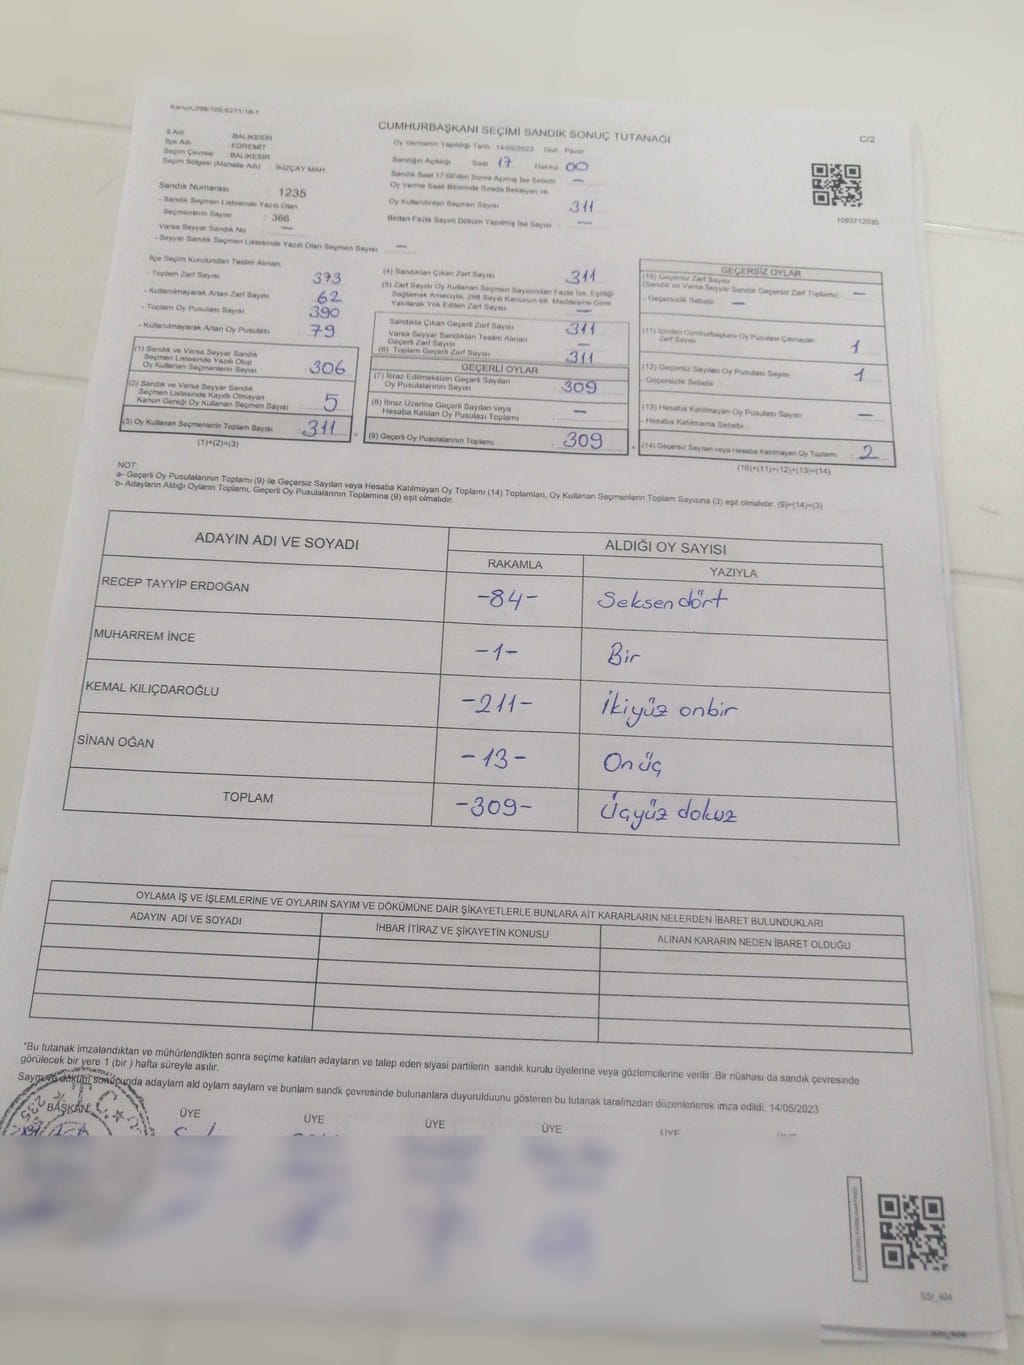 Kanun:298/105,6271/18-1
CUMHURBAŞKANI SEÇİMİ SANDIK SONUÇ TUTANAĞI
C/2
İl Adı : BALIKESİR
İlçe Adı : EDREMİT
Seçim Çevresi : BALIKESİR
Seçim Bölgesi (Mahalle Adı) : İKİZÇAY MAH.
Sandık Numarası : 1235
- Sandık Seçmen Listesinde Yazılı Olan
Seçmenlerin Sayısı : 366
Varsa Seyyar Sandık No : —
- Seyyar Sandık Seçmen Listesinde Yazılı Olan Seçmen Sayısı : —
Oy Vermenin Yapıldığı Tarih : 14/05/2023 Gün : Pazar
Sandığın Açıldığı Saat 17 Dakika 00
Sandık Saat 17:00'den Sonra Açılmış İse Sebebi : —
Oy Verme Saati Bitiminde Sırada Bekleyen ve
Oy Kullandırılan Seçmen Sayısı : 311
Birden Fazla Sayım Döküm Yapılmış İse Sayısı : —
1093712095
İlçe Seçim Kurulundan Teslim Alınan;
- Toplam Zarf Sayısı : 373
- Kullanılmayarak Artan Zarf Sayısı : 62
- Toplam Oy Pusulası Sayısı : 390
- Kullanılmayarak Artan Oy Pusulası : 79
(1) Sandık ve Varsa Seyyar Sandık
Seçmen Listesinde Yazılı Olup
Oy Kullanan Seçmenlerin Sayısı : 306
(2) Sandık ve Varsa Seyyar Sandık
Seçmen Listesinde Kayıtlı Olmayan
Kanun Gereği Oy Kullanan Seçmen Sayısı : 5
(3) Oy Kullanan Seçmenlerin Toplam Sayısı : 311
(1)+(2)=(3)
(4) Sandıktan Çıkan Zarf Sayısı : 311
(5) Zarf Sayısı Oy Kullanan Seçmen Sayısından Fazla İse, Eşitliği
Sağlamak Amacıyla, 298 Sayılı Kanunun 98. Maddesine Göre
Yakılarak Yok Edilen Zarf Sayısı : —
Sandıkta Çıkan Geçerli Zarf Sayısı : 311
Varsa Seyyar Sandıktan Teslim Alınan
Geçerli Zarf Sayısı : —
(6) Toplam Geçerli Zarf Sayısı : 311
GEÇERLİ OYLAR
(7) İtiraz Edilmeksizin Geçerli Sayılan
Oy Pusulalarının Sayısı : 309
(8) İtiraz Üzerine Geçerli Sayılan veya
Hesaba Katılan Oy Pusulası Toplamı : —
(9) Geçerli Oy Pusulalarının Toplamı : 309
GEÇERSİZ OYLAR
(10) Geçersiz Zarf Sayısı
(Sandık ve Varsa Seyyar Sandık Geçersiz Zarf Toplamı) : —
- Geçersizlik Sebebi : —
(11) İçinden Cumhurbaşkanı Oy Pusulası Çıkmayan
Zarf Sayısı : 1
(12) Geçersiz Sayılan Oy Pusulası Sayısı : 1
- Geçersizlik Sebebi :
(13) Hesaba Katılmayan Oy Pusulası Sayısı : —
- Hesaba Katılmama Sebebi :
(14) Geçersiz Sayılan veya Hesaba Katılmayan Oy Toplamı : 2
(10)+(11)+(12)+(13)=(14)
NOT:
a- Geçerli Oy Pusulalarının Toplamı (9) ile Geçersiz Sayılan veya Hesaba Katılmayan Oy Toplamı (14) Toplamları, Oy Kullanan Seçmenlerin Toplam Sayısına (3) eşit olmalıdır. (9)+(14)=(3)
b- Adayların Aldığı Oyların Toplamı, Geçerli Oy Pusulalarının Toplamına (9) eşit olmalıdır.
ADAYIN ADI VE SOYADI
ALDIĞI OY SAYISI
RAKAMLA YAZIYLA
RECEP TAYYİP ERDOĞAN -84- Seksen dört
MUHARREM İNCE -1- Bir
KEMAL KILIÇDAROĞLU -211- İkiyüz onbir
SİNAN OĞAN -13- On üç
TOPLAM -309- Üçyüz dokuz
OYLAMA İŞ VE İŞLEMLERİNE VE OYLARIN SAYIM VE DÖKÜMÜNE DAİR ŞİKAYETLERLE BUNLARA AİT KARARLARIN NELERDEN İBARET BULUNDUKLARI
ADAYIN ADI VE SOYADI İHBAR İTİRAZ VE ŞİKAYETİN KONUSU ALINAN KARARIN NEDEN İBARET OLDUĞU
*Bu tutanak imzalandıktan ve mühürlendikten sonra seçime katılan adayların ve talep eden siyasi partilerin sandık kurulu üyelerine veya gözlemcilerine verilir. Bir nüshası da sandık çevresinde
görülecek bir yere 1 (bir ) hafta süreyle asılır.
Sayım ve döküm sonucunda adayların ald oyların sayları ve bunların sandk çevresinde bulunanlara duyurulduunu gösteren bu tutanak tarafmzdan düzenlenerek imza edildi. 14/05/2023
BAŞKAN ÜYE ÜYE ÜYE ÜYE ÜYE
T.C.
SSI_404
SSI_404